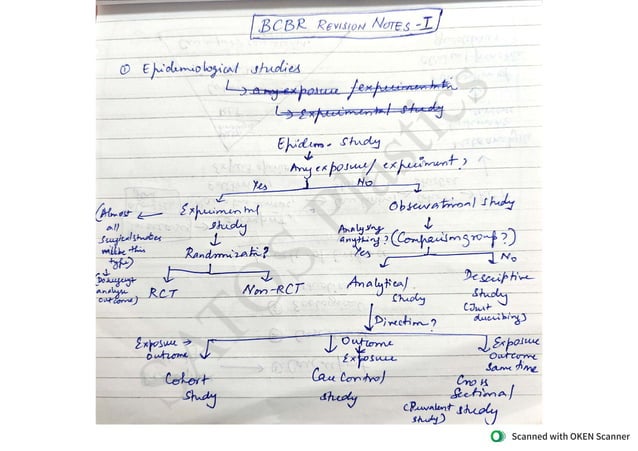 BCBR REVISION NOTES -I
① Epidemiological studies
any exposure / experimentatn
Experimental study
Epidem. study
Any exposure / experiment?
Yes No
(Almost all Surgical studies
Experimental study
Observational study
Analysing anything? (Comparison group?)
Yes No
Randomizatn?
RCT
Non-RCT
Analytical study
Descriptive study
(Just describing)
Direction?
Exposure → outcome
Outcome
Exposure
Exposure Outcome same time
Cohort study
Case Control study
Cross Sectional study
(Prevalent study)
SATOS Plastics
Scanned with OKEN Scanner